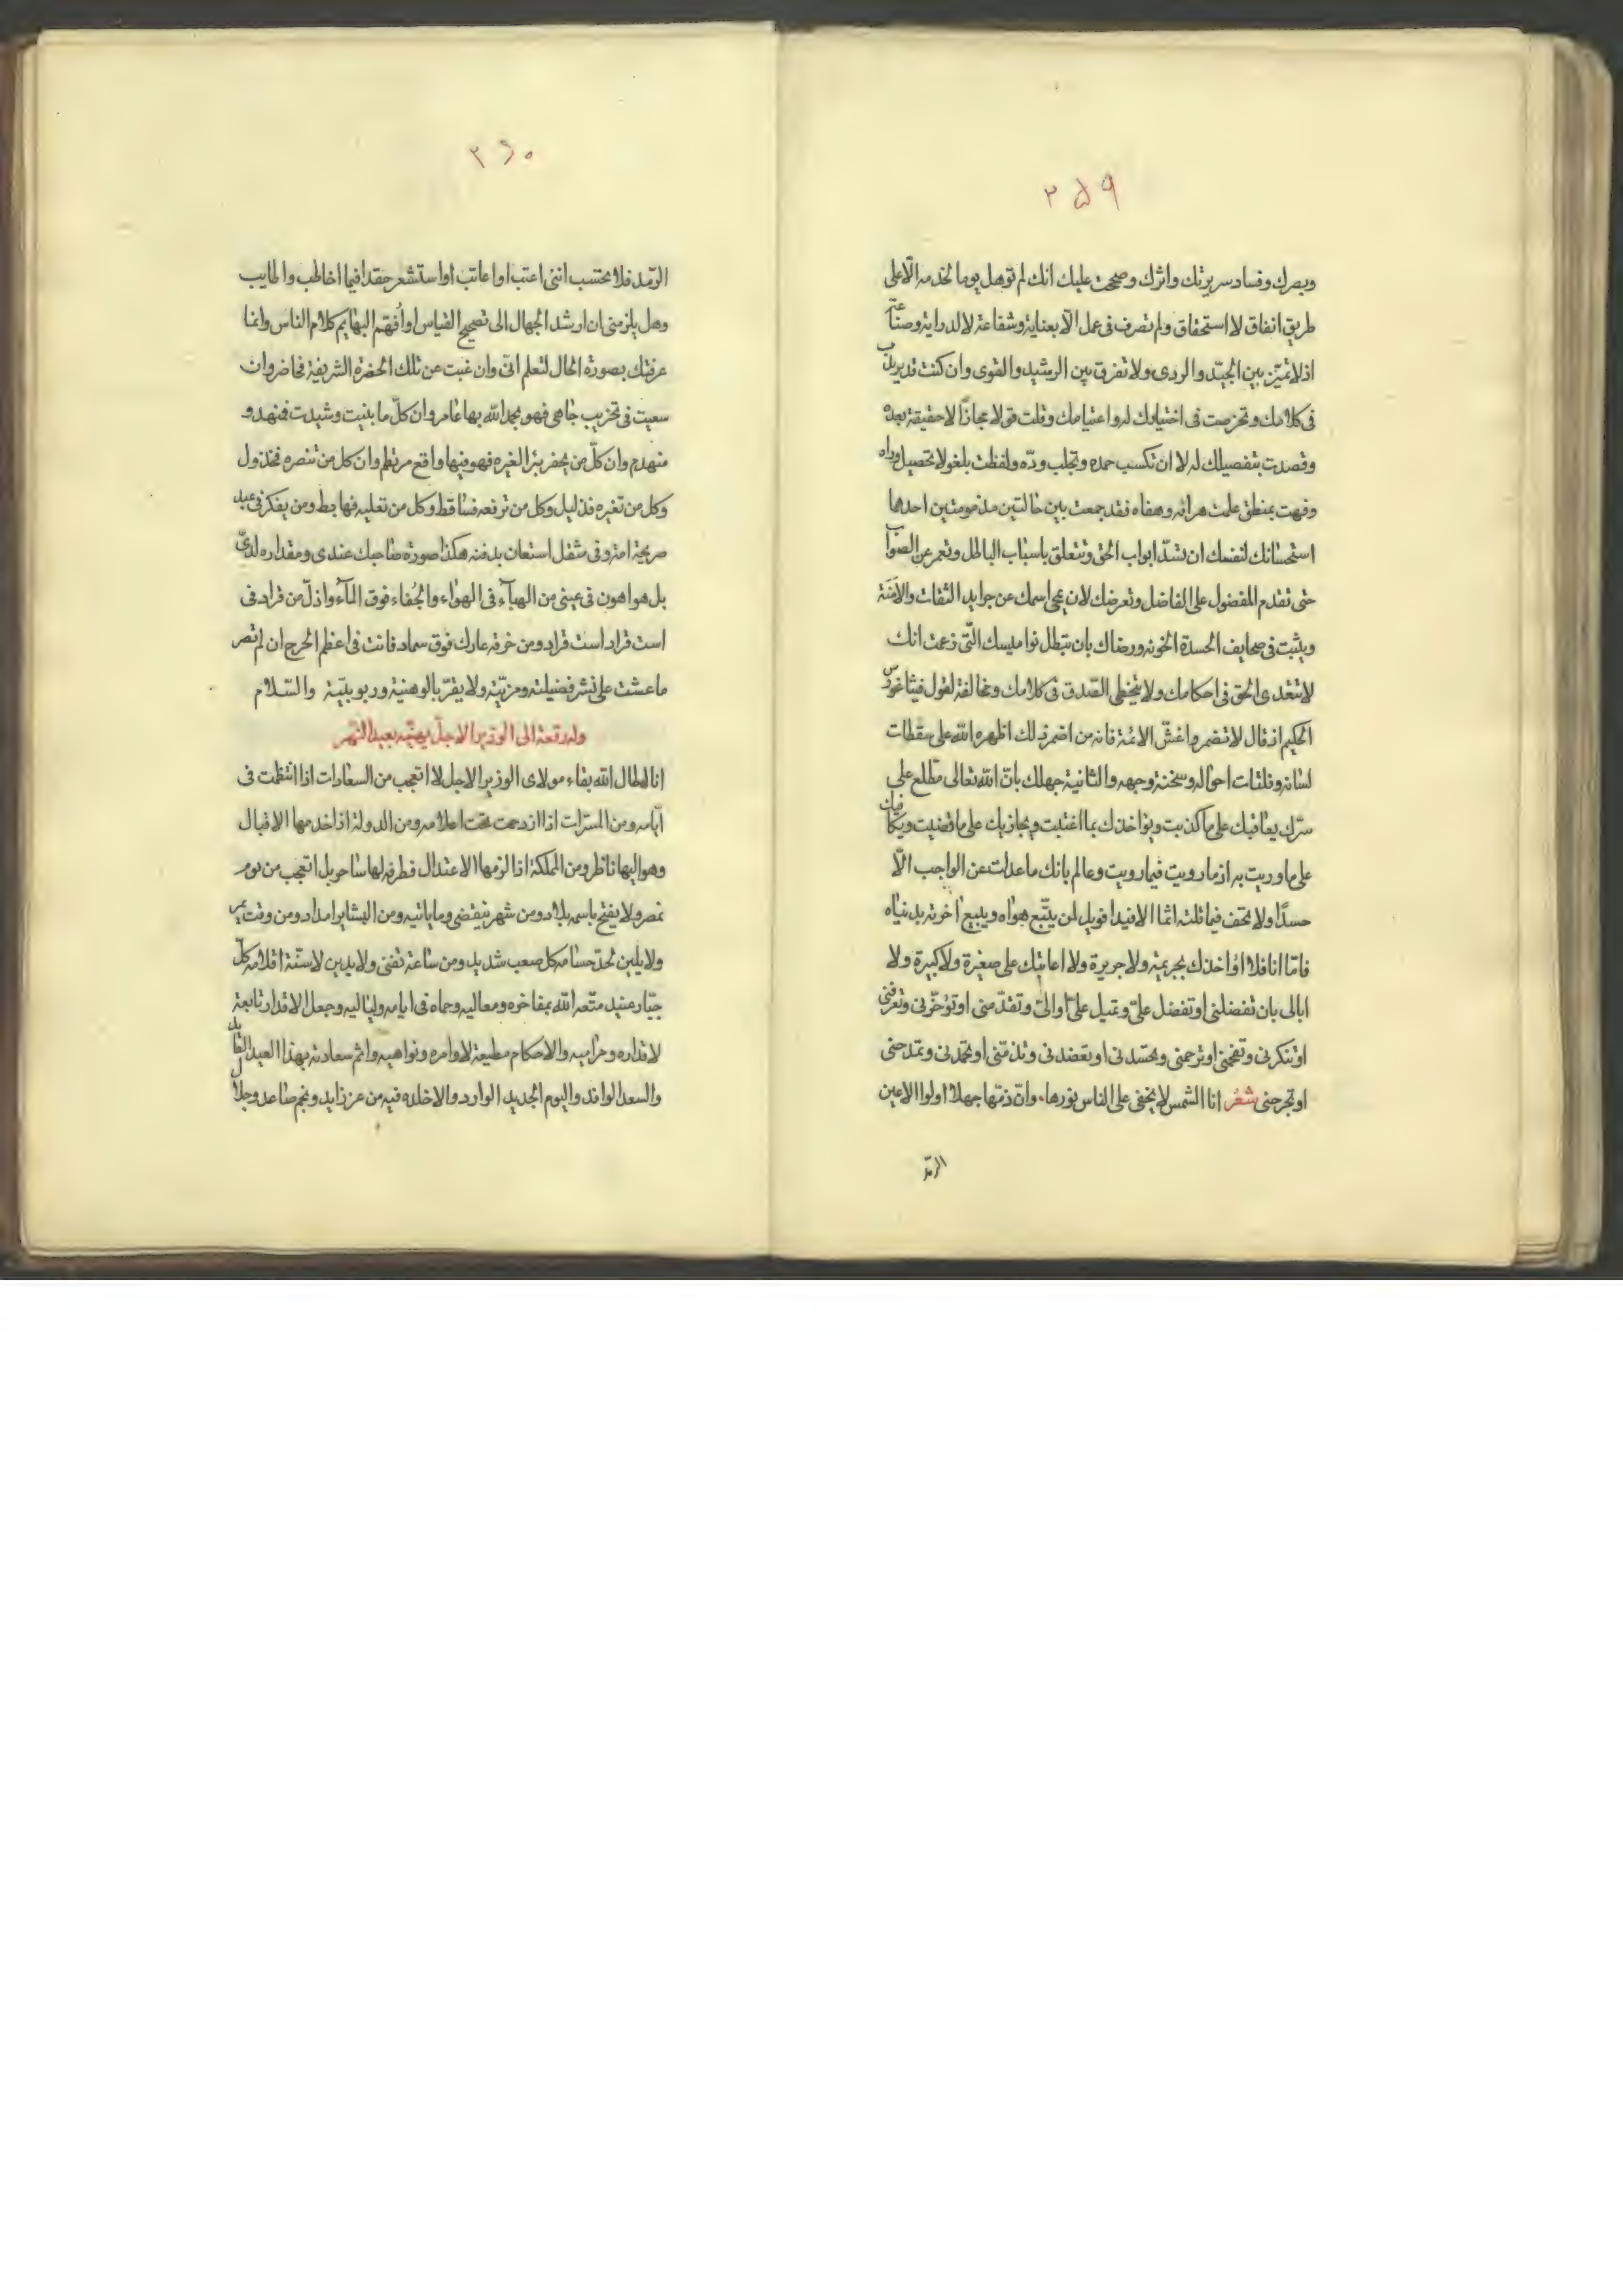 ٢٥٩
وبصرك وفساد سريرتك واثرك وصحت عليك انك لم توهل يوما لخدمه الّا على
طريق اتفاق لا استحقاق ولم تصرف فى عمل الّا بعناية وشفاعة لا لدراية وصناعة
اذ لا تميّز بين الجيّد والردى ولا تفرق بين الرشيد والغوى وان كنت قد
فى كلامك وتخرصت فى اختيارك له واعتيامك وقلت قولا مجازًا لا حقيقة بعده
وقصدت بتفضيلك له لا ان تكسب حمده وتجلب ودّه ولفظت بلغو لا تحصيل وراه
وفهت بمنطق علمت هرائه وهفاه فقد جمعت بين حالتين مذمومتين احدها
استحسانك لنفسك ان تسدّ ابواب الحق وتتعلق باسباب الباطل وتعمر عن الصواب
حتى تقدم المفضول على الفاضل وتعرضك لان يمحى اسمك عن جرايد الثقات والامنة
ويثبت فى صحايف الحسدة الخونة ورضاك بان تبطل نواميسك الّتى زعمت انك
لا تتعدى الحق فى احكامك ولا تتخطى الصّدق فى كلامك ومخالفة لقول فيثاغورس
الحكيم اذ قال لا تضمروا غشّ الائمة فانه من اضمر ذلك اظهره الله على سقطات
لسانه وفلتات احواله وسخنة وجهه والثانية جهلك بانّ الله تعالى مطّلع على
سرّك يعاقبك على ما كذبت ويؤاخذك بما اغتبت ويجازيك على ما قضيت ويكافيك
على ما وريت به از ما رويت فيما رويت وعالم بانك ما عدلت عن الواجب الّا
حسدًا ولا تخف فيما قلته اثما الا فيدا فويل لمن يتّبع هواه ويبيع اخرته بدنياه
فامّا انا فلا اؤاخذك بجريمة ولا جريرة ولا اعاتبك على صغيرة ولا كبيرة ولا
ابالى بان تفضلنى او تفضل علىّ وتميل علىّ او الىّ وتقدّمنى او تؤخّرنى وتعرفنى
او تنكرنى وتفخمنى او ترحمنى وتحسدنى او تعضدنى وتذمّنى او تحمدنى وتمدحنى
او تجرحنى شعر انا الشمس لا يخفى على الناس نورها وانّ ذمّها جهلا اولوا الاعين
الرمّد
٢٦٠
الرمّد فلا تحتسب اننى اعتب او اعاتب او استشعر حقدا فيما اخاطب واطايب
وهل يلزمنى ان ارشد الجهال الى تصحيح القياس او اُفهّم البهايم كلام الناس وانما
عرفتك بصورة الحال لتعلم انى وان غبت عن تلك الحضرة الشريفة فحاضر وان
سعيت فى تخريب جاهى فهو بحمد الله بها عامر وان كلّ ما بنيت وشيدت فمنهد و
منهدم وان كلّ من يحفر بئرا لغيره فهو فيها واقع مرتطم وان كل من تنصره فمخذول
وكل من تغيره فذليل وكل من ترفعه فساقط وكل من تعليه فهابط ومن يفكر فى عبد
صريحة امته وفى شغل استعان بدفنه هكذا صورة صاحبك عندى ومقداره لدىّ
بل هو اهون فى عينى من الهبآء فى الهواء والجُفاء فوق المآء واذلّ من قراد فى
است قراد است قراد ومن خرقة عارك فوق سماد فانت فى اعظم الحرج ان لم تصر
ما عشت على نشر فضيلته ومزيّته ولا يقرّ بالوهنية وربوبيّية والسّلام
وله رقعة الى الوزير الاجلّ يهنّيه بعيد النّحر
انا اطال الله بقاء مولاى الوزير الاجل لا اتعجب من السعادات اذا انتظمت فى
ايّامه ومن المسرّات اذا ازدحمت تحت اعلامه ومن الدولة اذا خدمها الاقبال
وهو اليها ناظر ومن المملكة اذا لزمها الاعتدال فطرفه لها ساحر بل اتعجب من يوم
تمر ولا يفتح باسمه بلاد ومن شهر ينقضى وما ياتيه ومن البشاير امداد ومن وقت يمر
ولا يلين لحدّ حسامه كل صعب شديد ومن ساعة تفنى ولا يدين لاسنّة اقلامه كلّ
جبّار عنيد متّعه الله بمفاخره ومعاليه وحماه فى ايامه ولياليه وجعل الاقدار تابعة
لاقداره ومراميه والاحكام مطيعة لاوامره ونواهيه واتم سعادته بهذا العيد القابل
والسعد الوافد واليوم الجديد الوارد والاخلده فيه من عز زايد ونجم صاعد وجلال